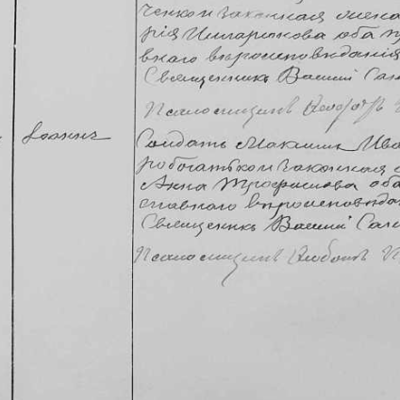 ченко и законная жена
рія Илларионова оба пр
внаго вѣроисповѣданія
Священникъ Василій Сал
Псаломщикъ
Іоаннъ
Солдатъ Максимъ Ива
робогатько и законная
Анна Трофимова оба
славнаго вѣроисповѣда
Священникъ Василій Сал
Псаломщикъ